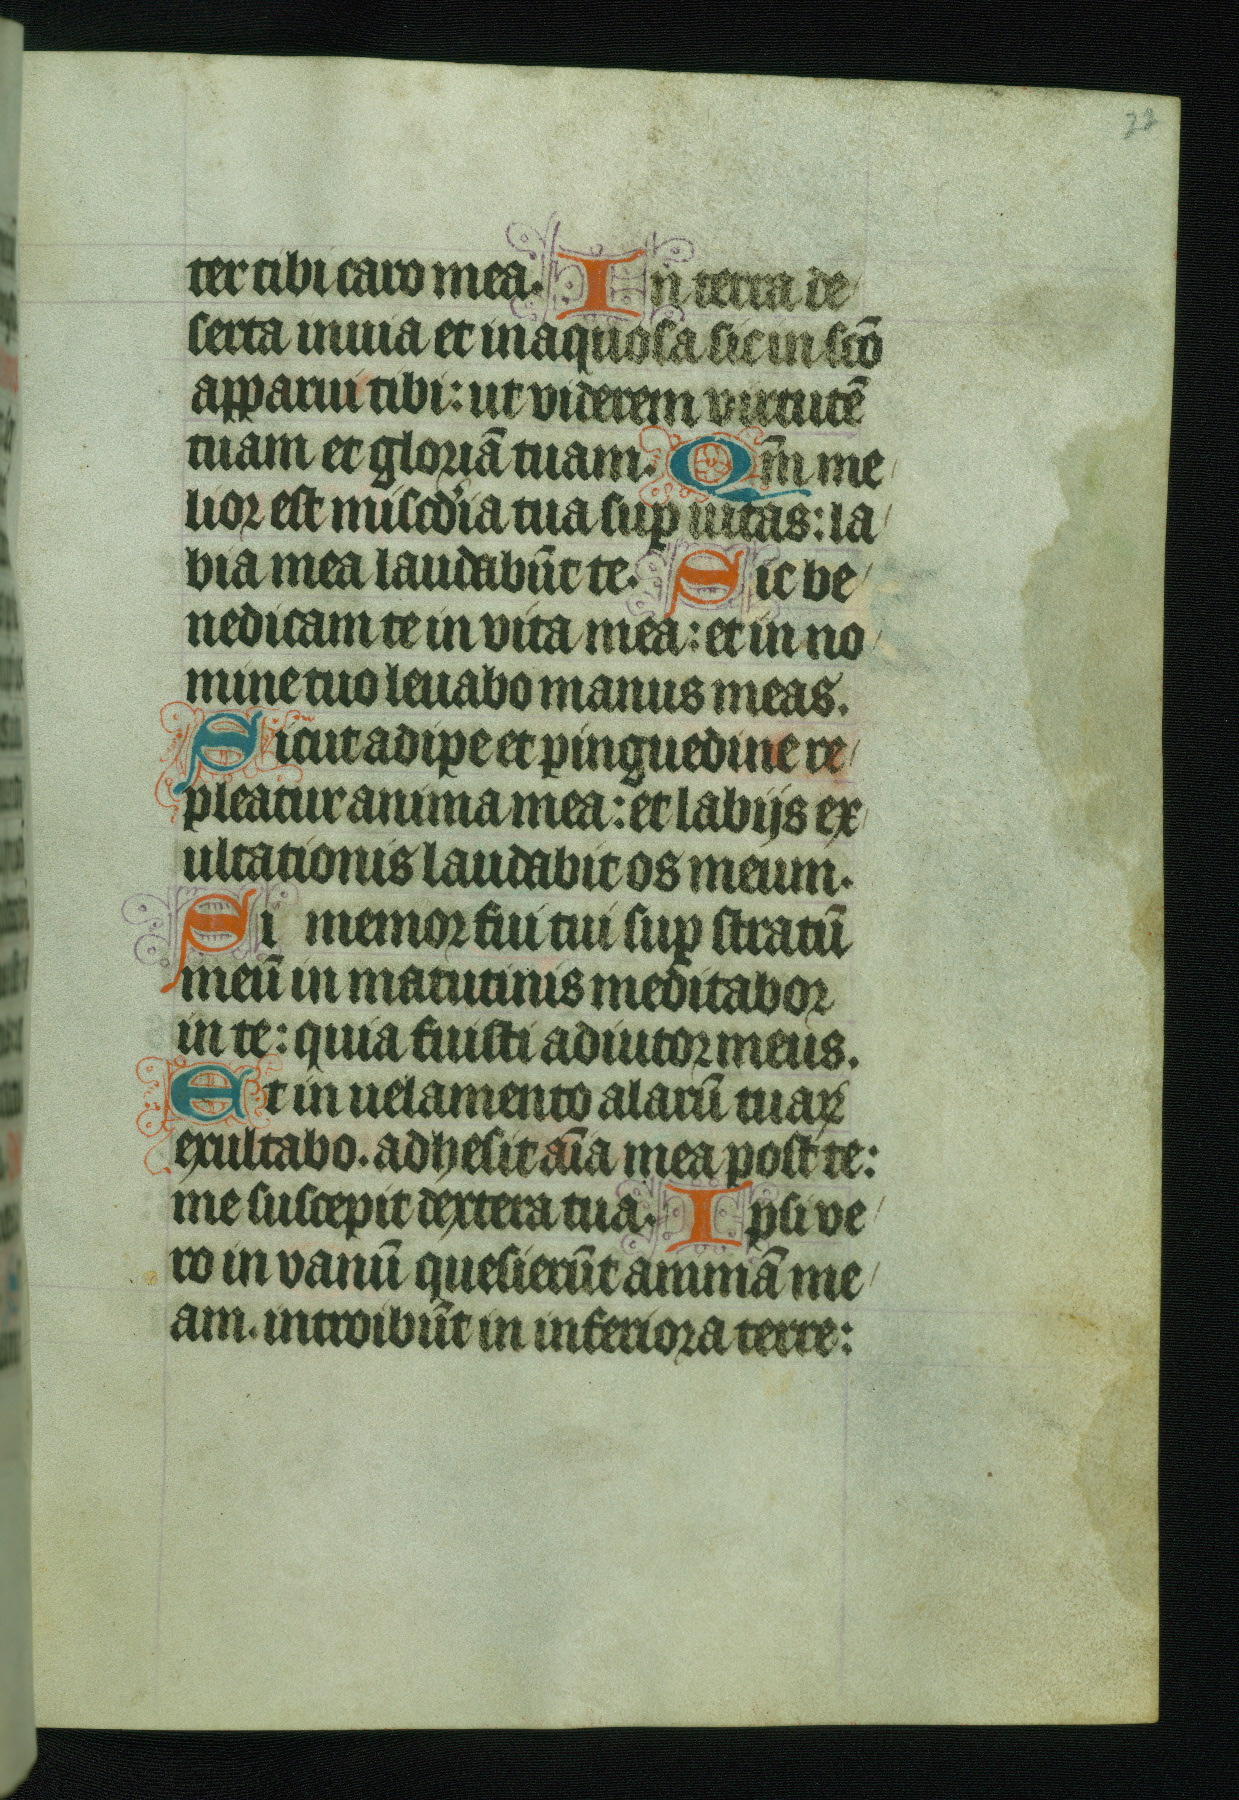 22
ter tibi caro mea. In terra de
serta inuia et inaquosa sic in scō
apparui tibi: ut viderem virtutē
tuam et gloriā tuam. Qm̄ me
lior est miscdia tua sup uitas: la
bia mea laudabūt te. Sic be
nedicam te in vita mea: et in no
mine tuo leuabo manus meas.
Sicut adipe et pinguedine re
pleatur anima mea: et labijs ex
ultationis laudabit os meum.
Si memor fui tui sup stratū
meū in matutinis meditabor
in te: quia fuisti adiutor meus.
Et in uelamento alarū tuaꝝ
exultabo. adhesit aīa mea post te:
me suscepit dextera tua. Ipsi ve
ro in vanū quesierūt animā me
am. introibūt in inferiora terre: